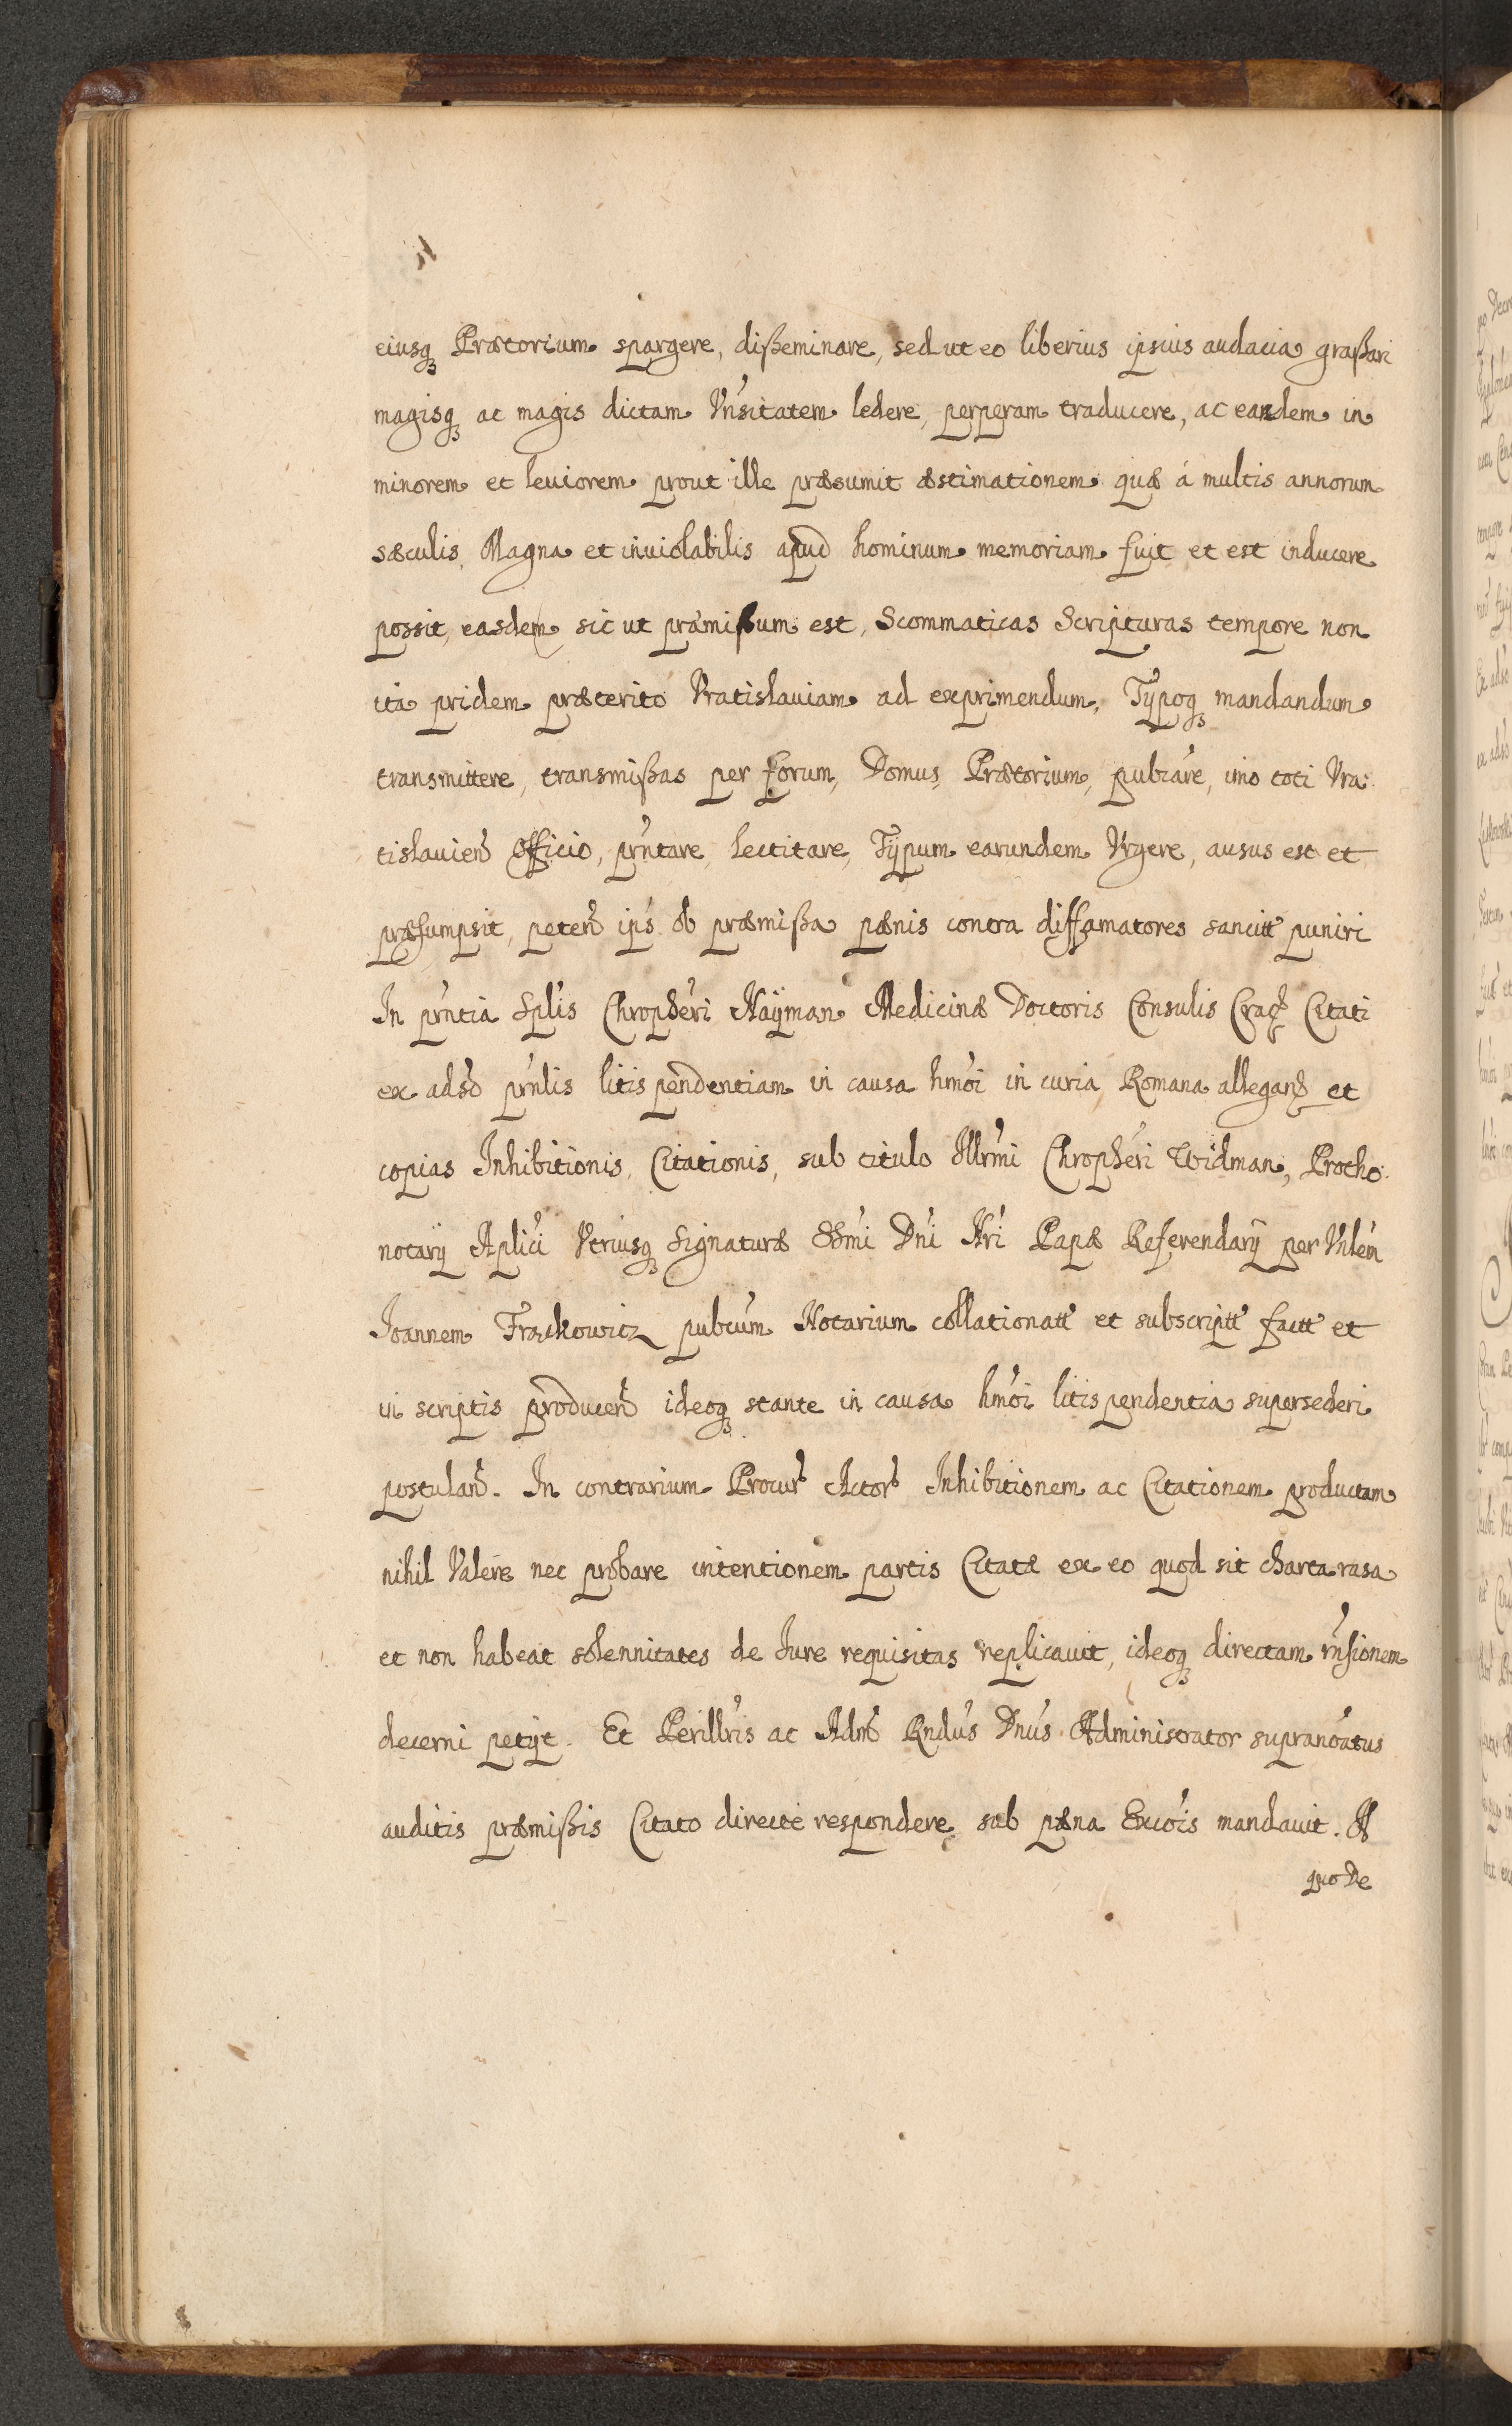 eiusq̃ Prætorium spargere, disseminare, sed ut eo liberius ipsius audacia grassari
magisq̃ ac magis dictam Vn̄sitatem ledere, perperam traducere, ac eandem in
minorem et leuiorem prout ille præsumit æstimationem quæ á multis annorum
sæculis, Magna et inuiolabilis apud hominum memoriam fuit et est inducere
possit, easdem sic ut præmissum est, Scommaticas Scripturas tempore non
ita pridem præterito Vratislauiam ad exprimendum, Typoq̃ mandandum
transmittere, transmissas per forum, Domus, Prætorium, pubcare, imo toti Vra:
tislauien̄ Officio, prn̄tare, lectitare, Typum earundem Vrgere, ausus est et
præsumpsit, peten̄ ips̄ ob præmissa pænis contra diffamatores sancitt puniri
In prn̄tia Splis Chropheri Nayman Medicinæ Doctoris Consulis Crac̄ Citati
ex adsō prn̄lis litis pendentiam in causa hmōi in curia Romana allegan̄ et
copias Inhibitionis, Citationis, sub titulo Illrmi Chropheri Widman, Protho:
notarij Aplici Vtriusq̃ Signaturæ SSmi Dn̄i Nr̄i Papæ Referendarij per Vnlem
Joannem Frackowicz pubcum Notarium collationatt et subscriptt factt et
in scriptis producen̄ ideoq̃ stante in causa hmōi litis pendentia supersederi
postulan̄. In contrarium Procur̄ Actor̄ Inhibitionem ac Citationem productam
nihil Valere nec probare intentionem partis Citatæ ex eo quod sit charta rasa
et non habeat solennitates de Iure requisitas replicauit, ideoq̃ directam rn̄sionem
decerni petijt. Et Perillris ac Adm̄ Rndus Dn̄us Administrator supranoatus
auditis præmissis Citato directe respondere sub pæna Excois mandauit. A
quo De